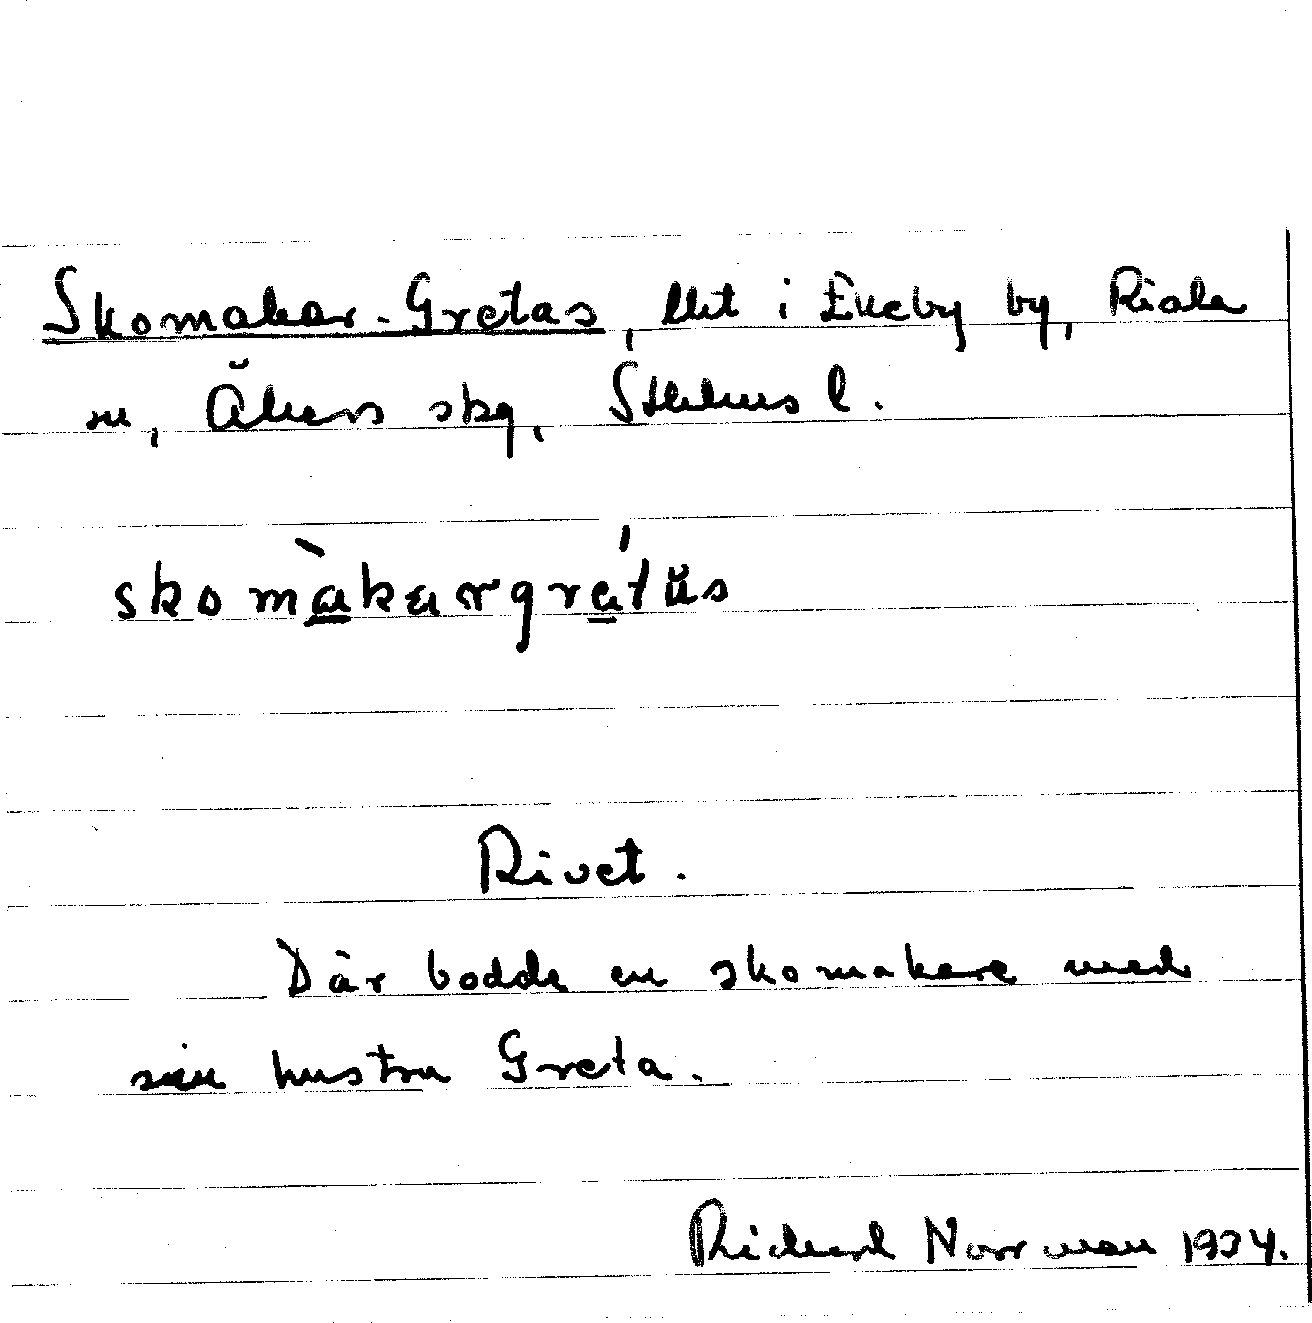 Skomakar-Gretas, lht i Ekeby by, Riala
sn, Åkers skg, Sthlms l.
skomàkargrátüs
Rivet.
Där bodde en skomakare med
sin hustru Greta.
Richard Norrman 1934.